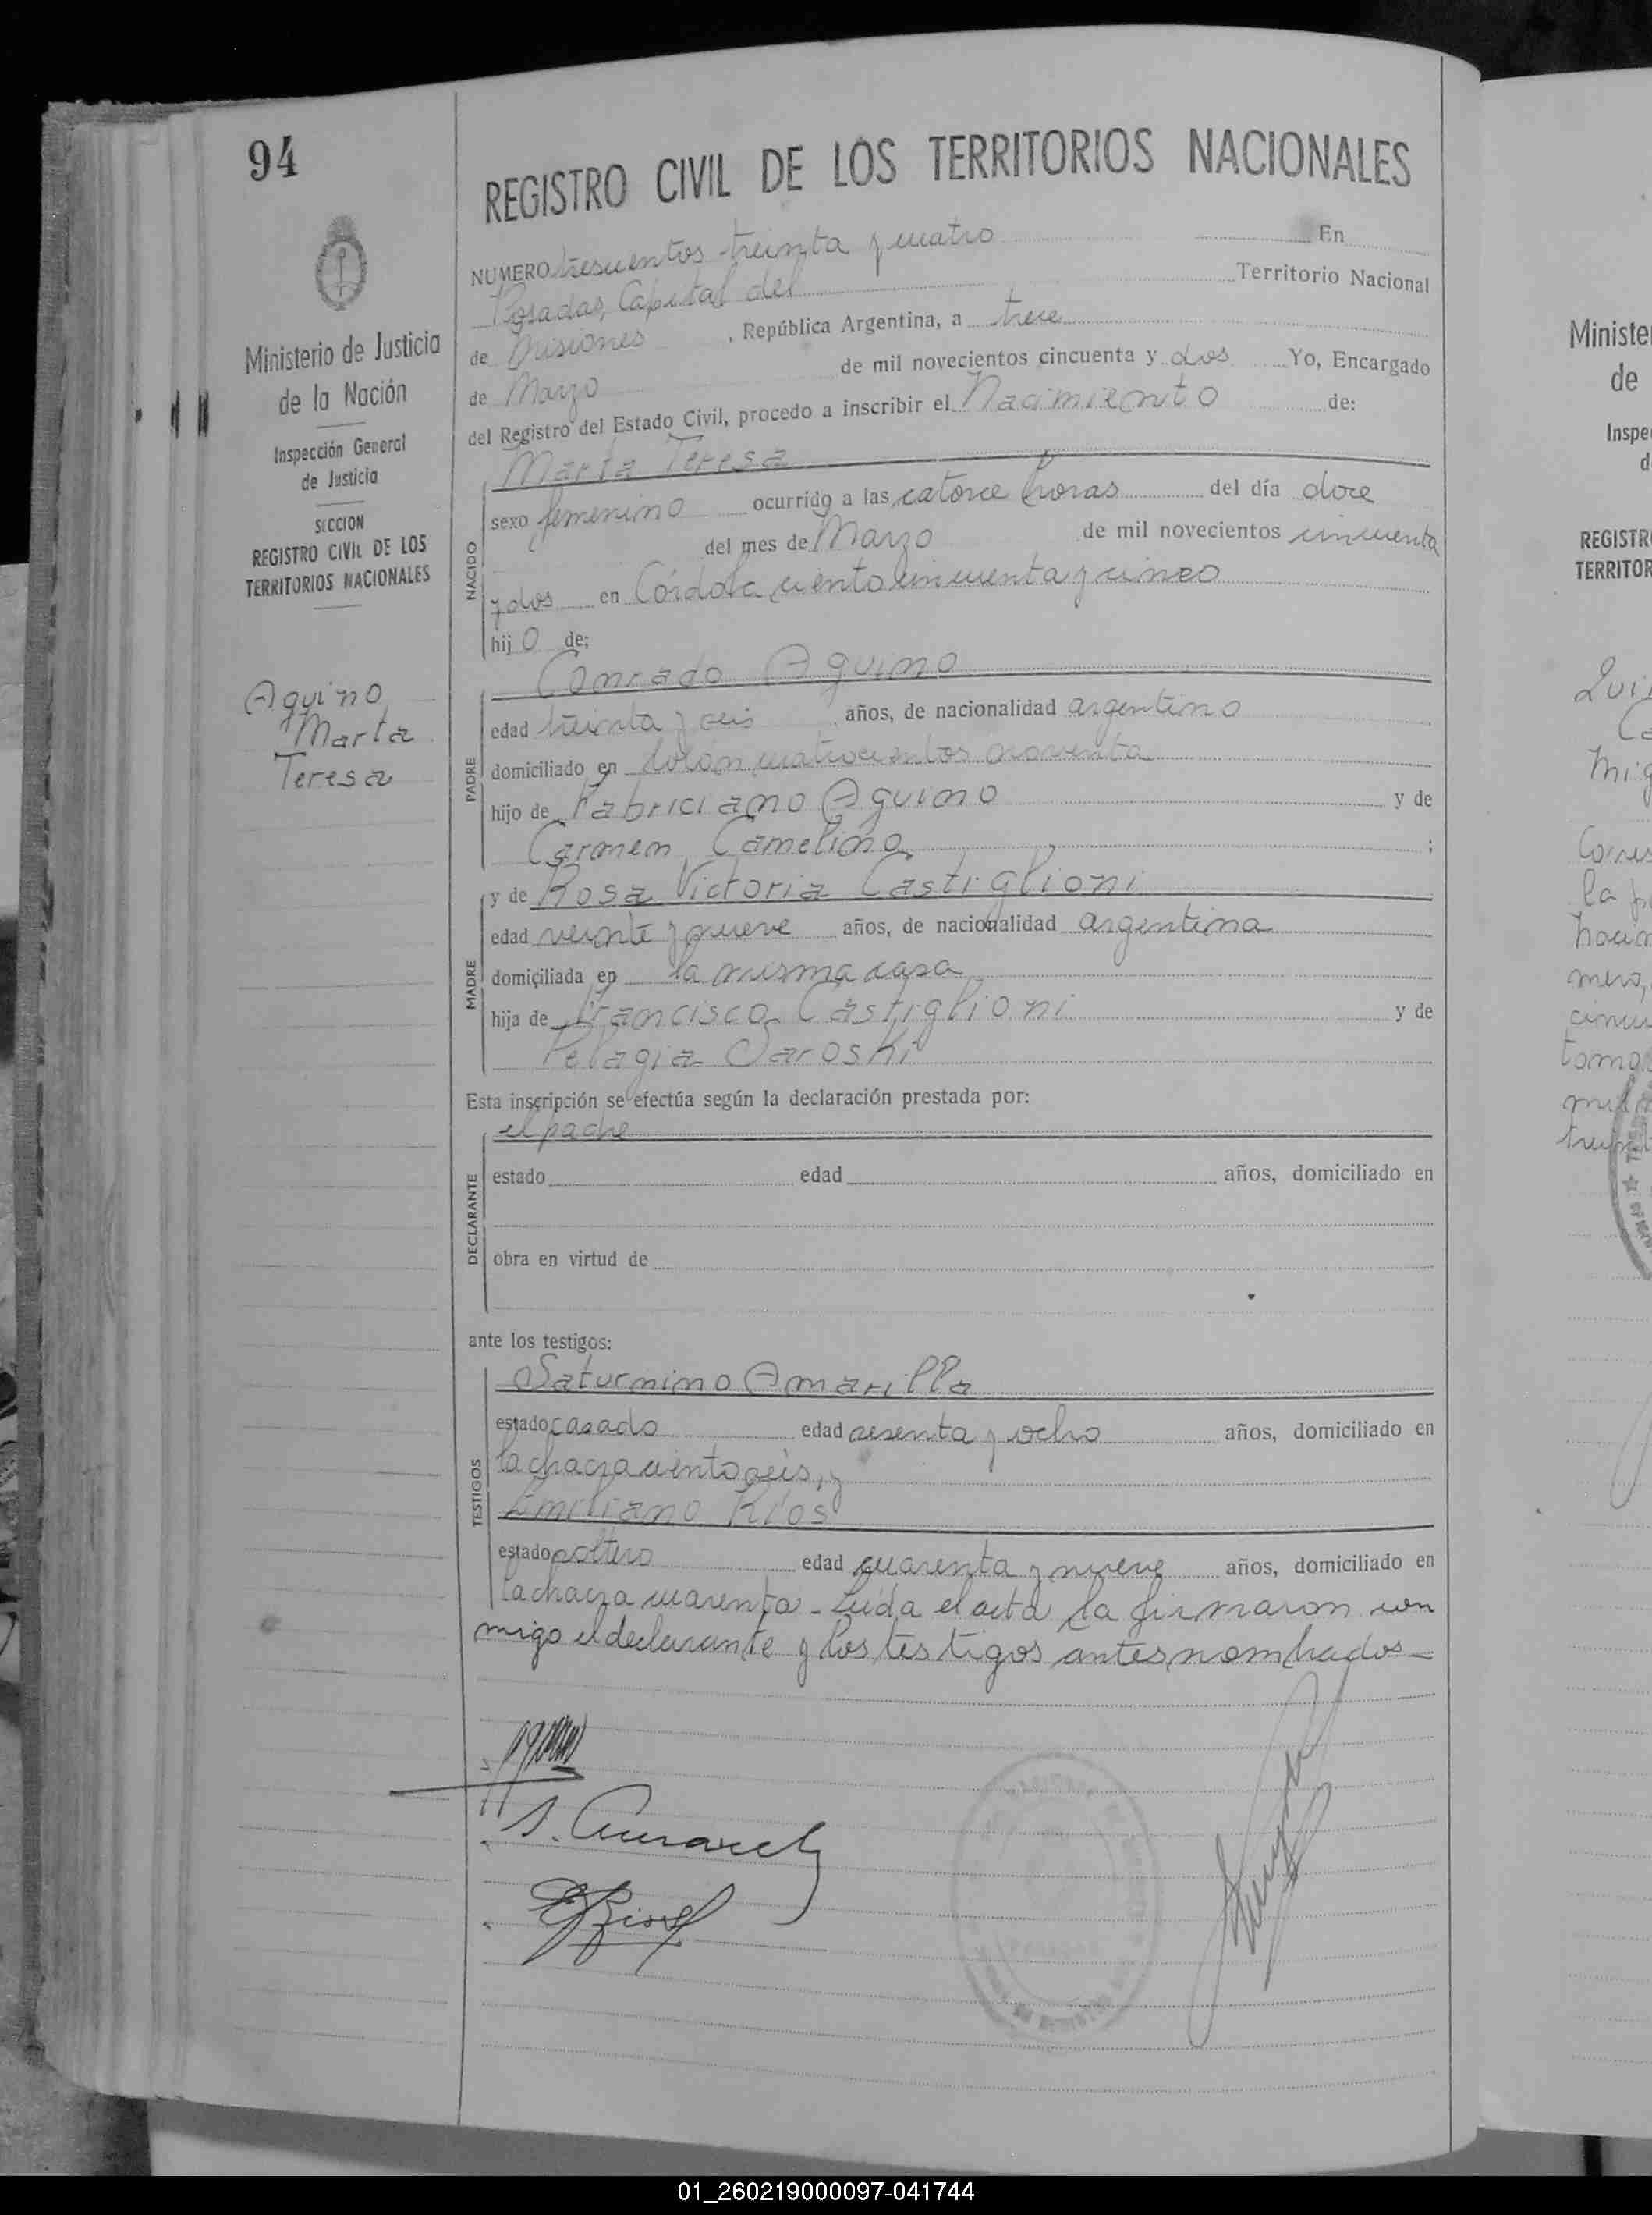 94
REGISTRO CIVIL DE LOS TERRITORIOS NACIONALES
Ministerio de Justicia
de la Nación
Inspección General
de Justicia
SECCION
REGISTRO CIVIL DE LOS
TERRITORIOS NACIONALES
Aquino
Marta
Teresa
NUMERO trescientos treinta y cuatro En
Posadas, Capital del Territorio Nacional
de Misiones, República Argentina, a trece
de Marzo de mil novecientos cincuenta y dos Yo, Encargado
del Registro del Estado Civil, procedo a inscribir el Nacimiento de:
Marta Teresa
NACIDO
sexo femenino ocurrido a las catorce horas del día doce
del mes de Marzo de mil novecientos cincuenta
y dos en Córdoba ciento cincuenta y cinco
hijo de:
Conrado Aquino
PADRE
edad treinta y seis años, de nacionalidad argentino
domiciliado en Colón cuatrocientos noventa
hijo de Fabriciano Aquino y de
Carmen Camelino ;
MADRE
y de Rosa Victoria Castiglioni
edad veinte y nueve años, de nacionalidad argentina
domiciliada en la misma casa
hija de Francisco Castiglioni y de
Pelagia Saroski
Esta inscripción se efectúa según la declaración prestada por:
el padre
DECLARANTE
estado edad años, domiciliado en
obra en virtud de
ante los testigos:
Saturnino Amarilla
TESTIGOS
estado casado edad sesenta y ocho años, domiciliado en
la chacra ciento seis, y
Emiliano Ríos
estado soltero edad cuarenta y nueve años, domiciliado en
la chacra cuarenta - Leída el acta la firmaron con
migo el declarante y los testigos antes nombrados -
S. Amarilla
E. Rios
Ministe
de
Inspe
d
REGISTR
TERRITOR
01_260219000097-041744